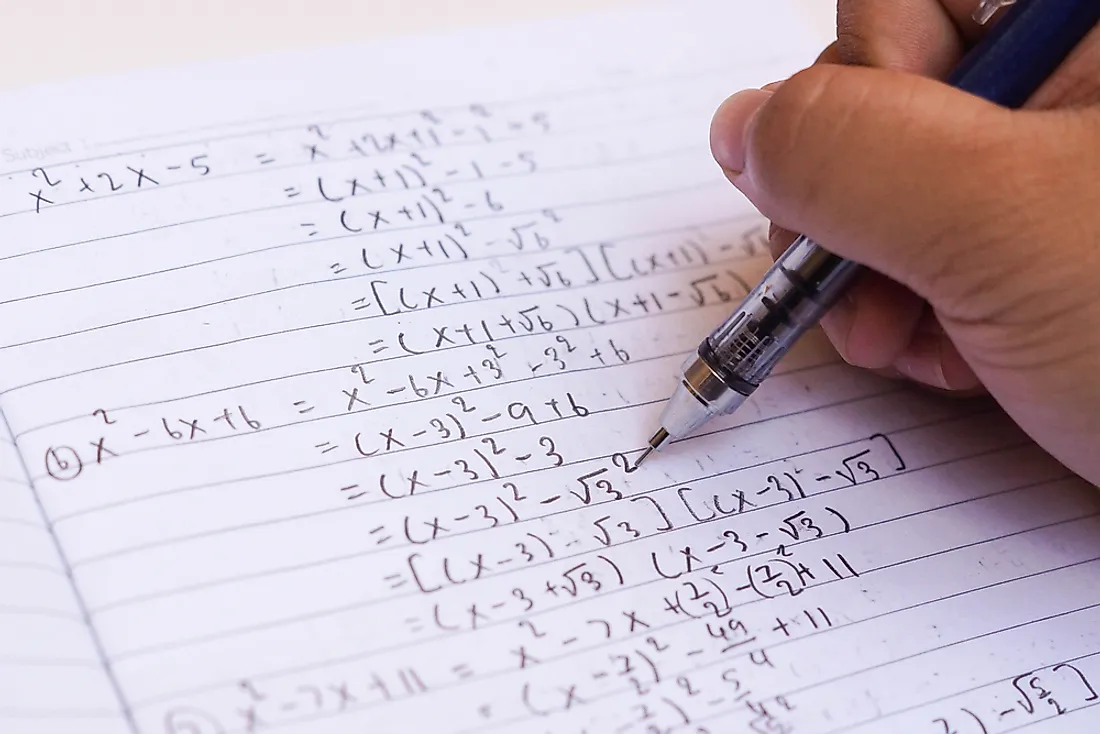 Subject
x² + 2x - 5 = x² + 2x + 1² - 1² - 5
= (x+1)² - 1 - 5
= (x+1)² - 6
= (x+1)² - √6²
= [(x+1) + √6] [(x+1) - √
= (x+1+√6) (x+1-√6)
(b) x² - 6x + 6 = x² - 6x + 3² - 3² + 6
= (x-3)² - 9 + 6
= (x-3)² - 3
= (x-3)² - √3²
= [(x-3) - √3] [(x-3) - √3]
= (x-3+√3) (x-3-√3)
x² - 7x + 11 = x² - 7x + (7/2)² - (7/2)² + 11
(x - 7/2)² - 49/4 + 11
2) - √5/2]